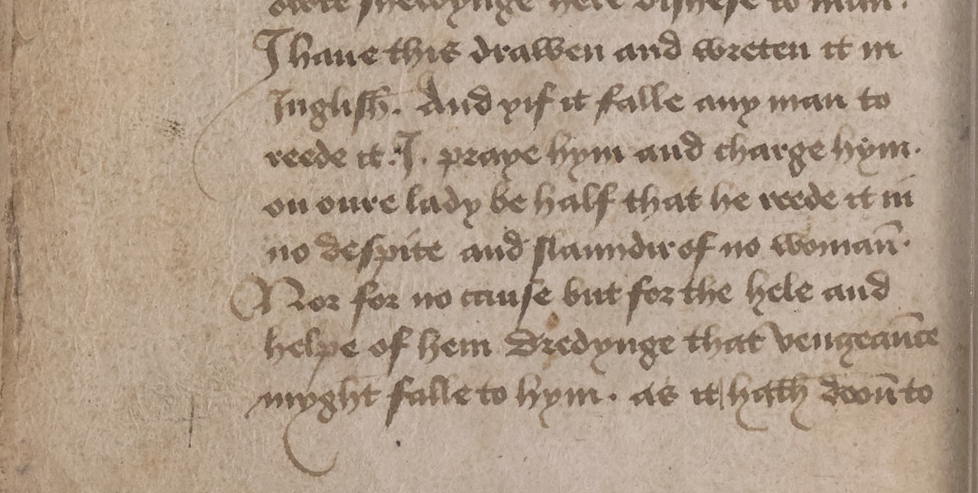 more shewynge here disese to man.
I haue this drawen and wreten it in
Inglish. And yif it falle any man to
reede it. I. praye hym and charge hym.
on oure lady be half that he reede it in
no despite and slaundir of no woman.
Nor for no cause but for the hele and
helpe of hem Dredynge that vengeance
myght falle to hym. as it hath doon to